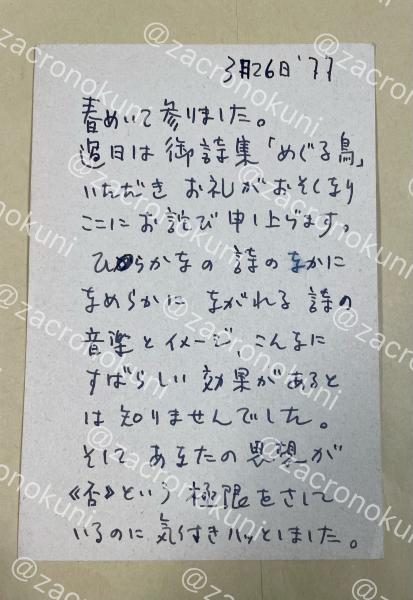 3月26日 '77
春めいて参りました。
過日は御詩集「めぐる鳥」
いただき お礼がおそくなり
ここにお詫び申し上げます。
ひらかなの詩のなかに
なめらかに ながれる詩の
音楽とイメージ こんなに
すばらしい効果があると
は知りませんでした。
そして あなたの思想が
《否》という極限をさして
いるのに気付きハッとしました。
@zacronokuni